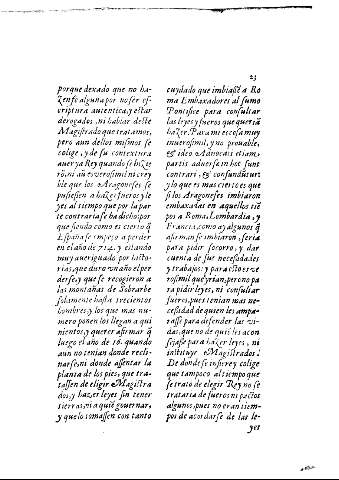 23
porque dexado que no ha-
zen fe alguna por no ser es-
criptura autentica, y estar
derogados, ni hablar deste
Magistrado que tratamos,
pero aun dellos mismos se
colige, y de su contextura
auer ya Rey quando se hizie
ro, ni aũ es verosimil ni crey
ble que los Aragoneses se
pusiessen a hazer fueros y le
yes al tiempo que por la par
te contraria se ha dicho: por
que siendo como es cierto q̃
España se empeço a perder
en el año de 714. y estando
muy aueriguado por histo-
rias, que duro vn año el per
derse, y que se recogieron a
las montañas de Sobrarbe
solamente hasta trecientos
hombres, y los que mas nu-
mero ponen los llegan a qui
nientos, y querer afirmar q̃
luego el año de 16. quando
aun no tenian donde recli-
narse, ni donde assentar la
planta de los pies, que tra-
tassen de eligir Magistra
dos, y hazer leyes sin tener
tierras, ni a quiẽ gouernar,
y que lo tomassen con tanto
cuydado que imbiassẽ a Ro
ma Embaxadores al sumo
Pontifice para consultar
las leyes y fueros que queriã
hazer. Para mi es cosa muy
inuerosimil, y no prouable,
& ideo Aduocati etiam
partis aduersæ in hoc sunt
contrarij, & confunduntur;
y lo que es mas cierto es que
si los Aragoneses imbiaron
embaxadas en aquellos siẽ
pos a Roma, Lombardia, y
Francia, como ay algunos q̃
afirman se imbiaron, seria
para pidir socorro, y dar
cuenta de sus necesidades
y trabajos: y para esto es ve
rosimil que yrian, pero no pa
ra pidir leyes, ni consultar
fueros, pues tenian mas ne-
cesidad de quien les ampa-
rasse para defender las vi-
das, que no de quiẽ les acon
sejasse para hazer leyes, ni
instituyr Magistrados.
De donde se infiere y colige
que tampoco al tiempo que
se trato de elegir Rey no se
trataria de fueros ni pactos
algunos, pues no eran tiem-
pos de acordarse de las le-
yes